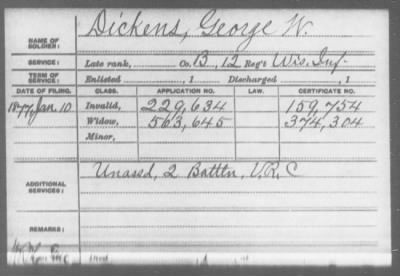 Dickens, George W.
NAME OF SOLDIER:
SERVICE: Late rank, Co. B, 12 Reg't Wis. Inf.
TERM OF SERVICE: Enlisted , 1 Discharged , 1
DATE OF FILING. CLASS. APPLICATION NO. LAW. CERTIFICATE NO.
1877, Jan. 10 Invalid, 229,634 159,754
Widow, 563,645 374,304
Minor,
ADDITIONAL SERVICES: Unassd, 2 Battln, V.R.C
REMARKS: